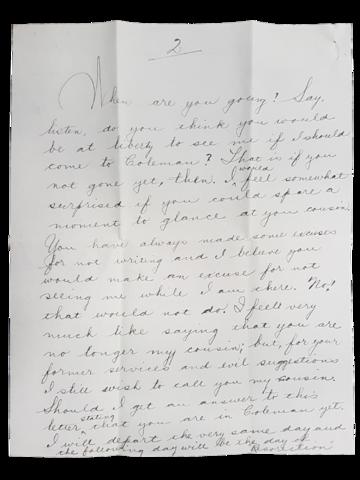 2
When are you going? Say,
listen, do you think you would
be at liberty to see me if I should
come to Coleman? That is if you
not gone yet, then. I would feel somewhat
surprised if you could spare a
moment to glance at your cousin.
You have always made some excuses
for not writing and I believe you
would make an excuse for not
seeing me while I am there. No!
that would not do. I feell very
much like saying that you are
no longer my cousin; but, for your
former services and evil suggestions
I still wish to call you my cousin.
Should I get an answer to this
letter stating that you are in Coleman yet.
I will depart the very same day and
the following day will be the day of